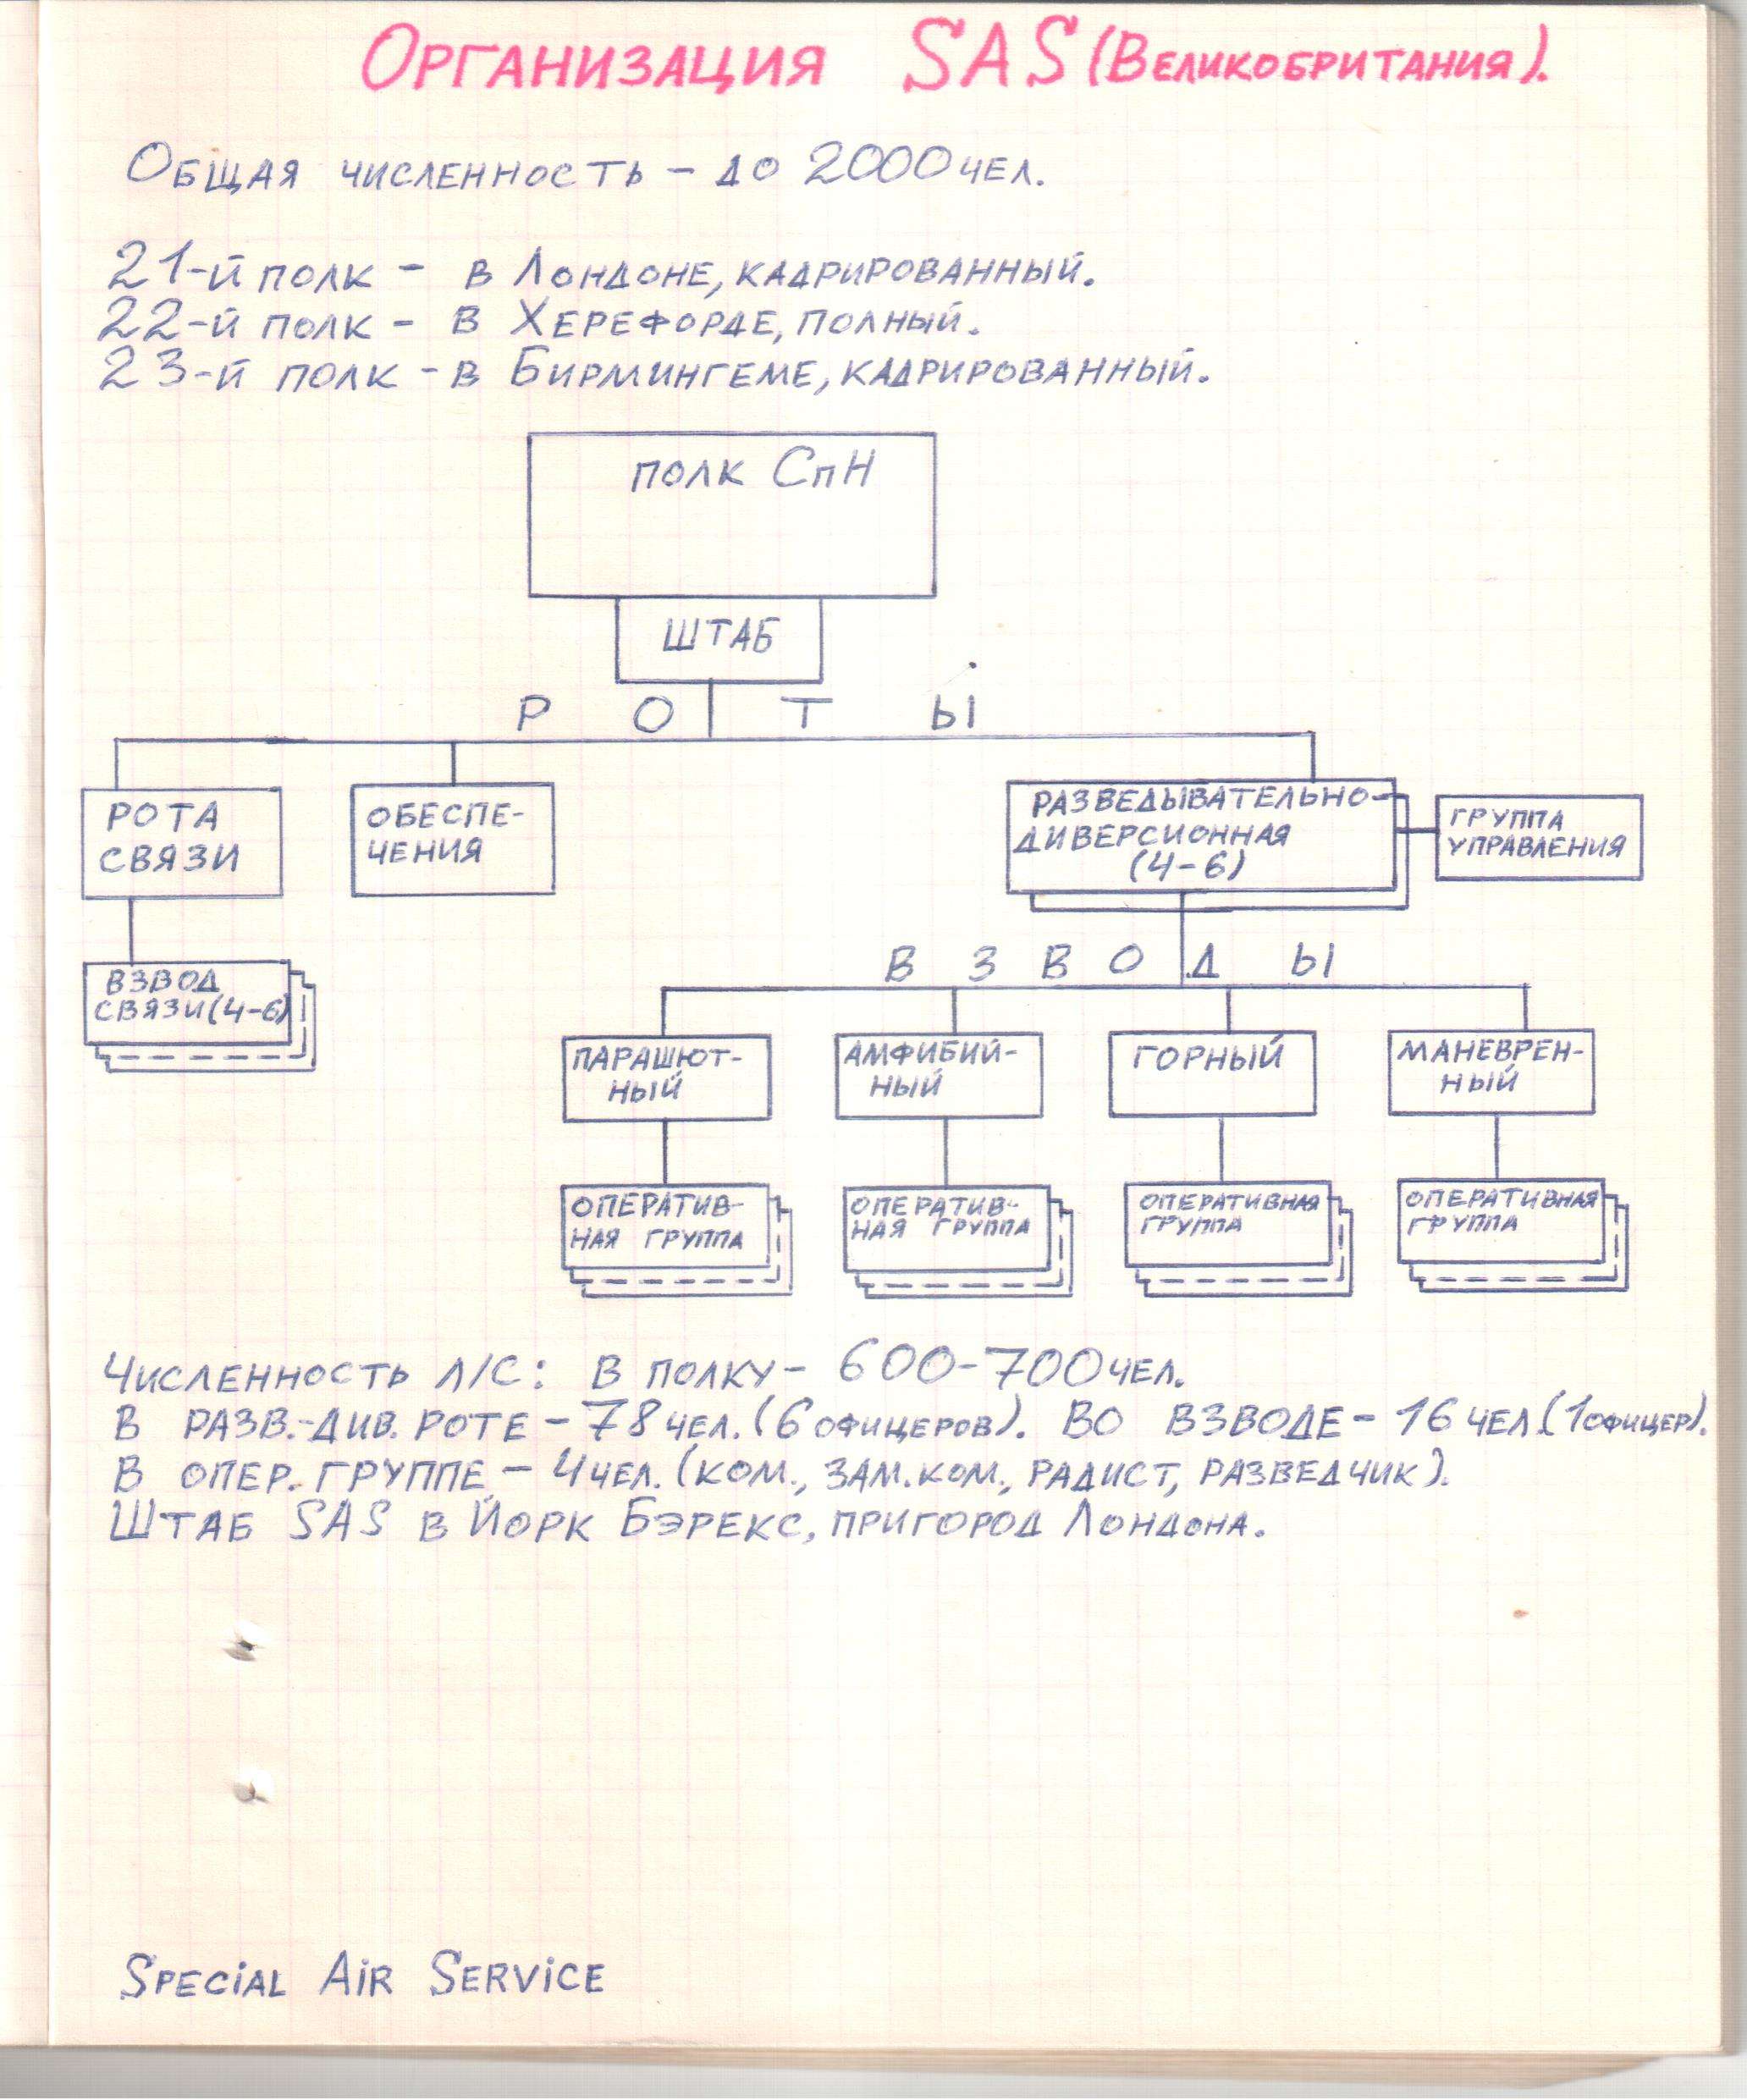 Организация SAS (Великобритания).
Общая численность – до 2000 чел.
21-й полк – в Лондоне, кадрированный.
22-й полк – в Херефорде, полный.
23-й полк – в Бирмингеме, кадрированный.
полк СпН
штаб
Р О Т Ы
рота
связи
обеспе-
чения
разведывательно-
диверсионная
(4-6)
группа
управления
взвод
связи (4-6)
В З В О Д Ы
парашют-
ный
амфибий-
ный
горный
маневрен-
ный
оператив-
ная группа
оператив-
ная группа
оперативная
группа
оперативная
группа
Численность л/с: в полку – 600-700 чел.
В разв.-див. роте – 78 чел. (6 офицеров). Во взводе – 16 чел. (1 офицер).
В опер. группе – 4 чел. (ком., зам. ком., радист, разведчик).
Штаб SAS в Йорк Бэрекс, пригород Лондона.
Special Air Service